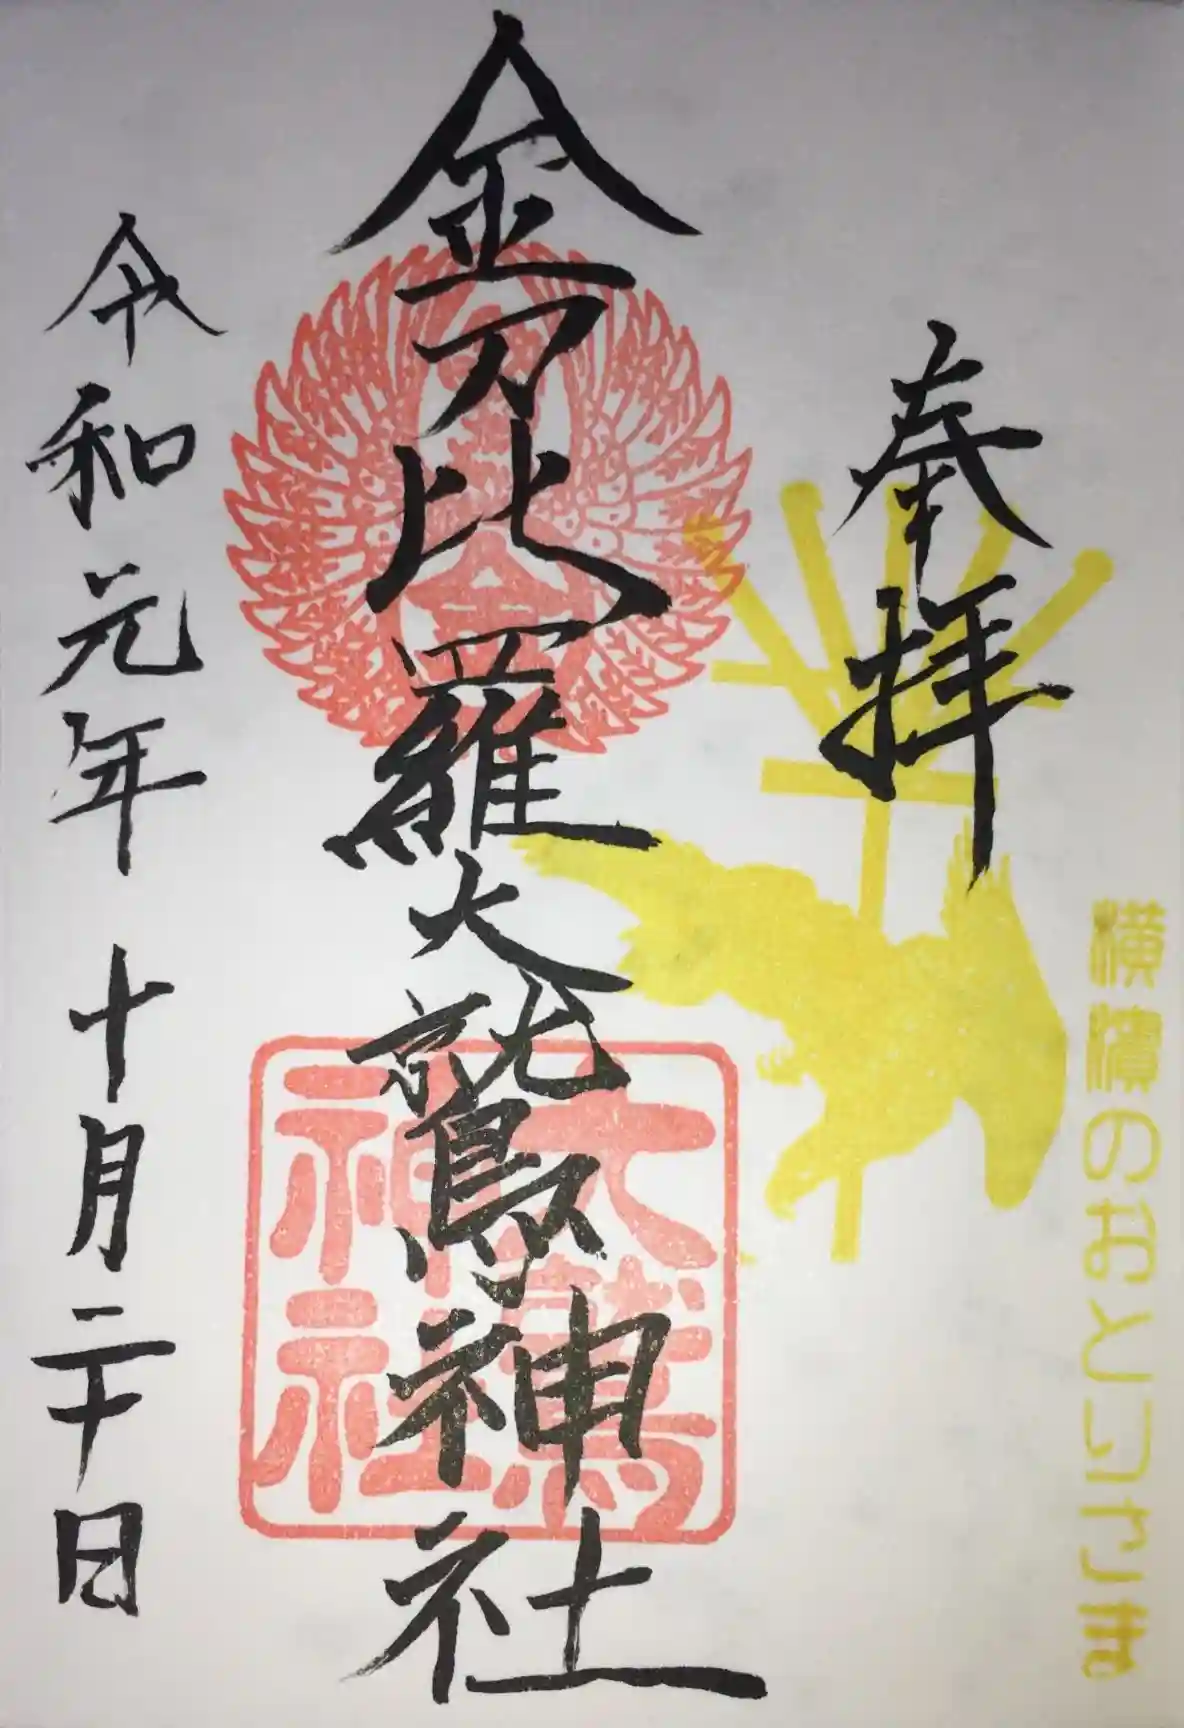 横濱のおとりさま
奉拝
金刀比羅大鷲神社
大鷲
神社
令和元年 十月二十日